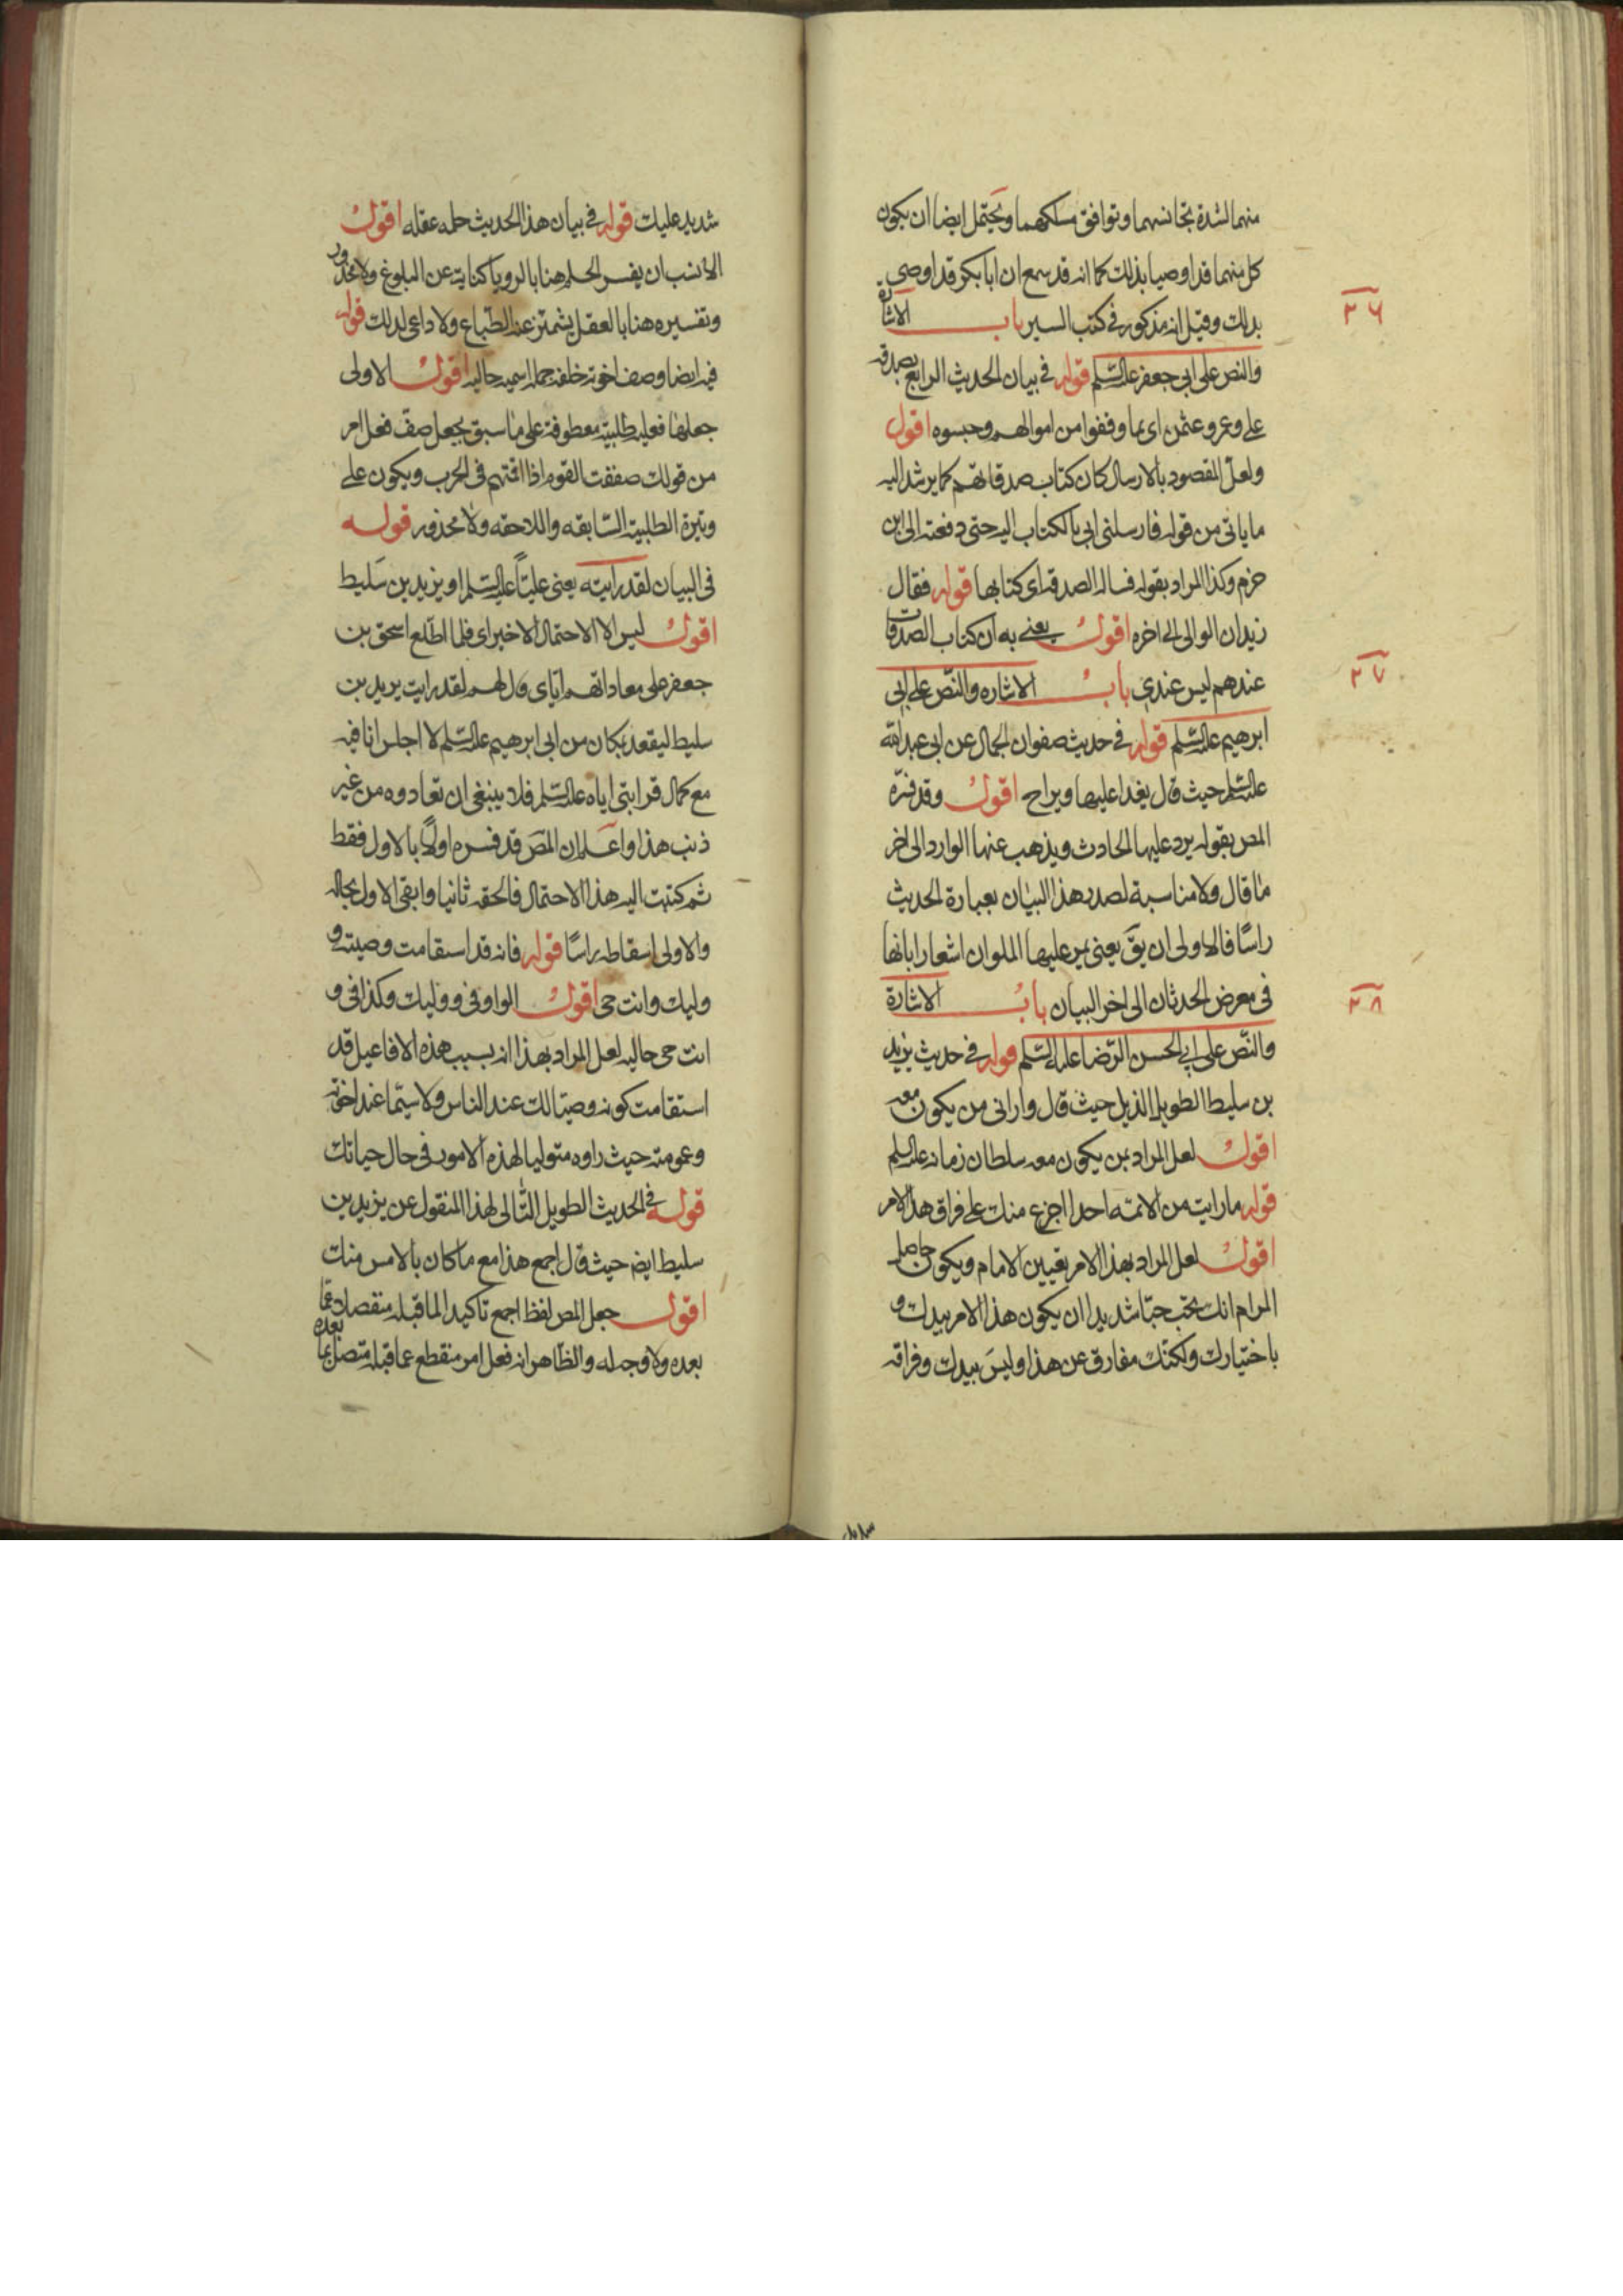 منهما لشدة تجانسهما وتوافق مسلكهما ويحتمل ايضا ان يكون
كل منهما قد اوصيا بذلك كما انه قد سمع ان ابا بكر قد اوصى
بذلك وقيل انه مذكور في كتب السير باب الاشارة
٢٦
والنص على ابي جعفر عليه السلم قوله في بيان الحديث الرابع بصدقة
على وعمر وعثمن اى بما وقفوا من اموالهم وحبسوه اقول
ولعل المقصود بالارسال كان كتاب صدقاتهم كما يرشد اليه
ما ياتى من قوله فارسلنى ابى بالكتاب اليه حتى دفعته الى ابن
حزم وكذا المراد بقوله فساله الصدقة اى كتابها قوله فقال
زيد ان الوالى الى اخره اقول يعنى به ان كتاب الصدقات
عندهم ليس عندى باب الاشاره والنص على ابى
٢٧
ابرهيم عليه السلم قوله في حديث صفوان الجمال عن ابى عبد الله
عليه السلم حيث قال يغدا عليها ويراح اقول وقد فسره
المص بقوله يرد عليها الحادث ويذهب عنها الوارد الى اخر
ما قال ولا مناسبة لصدر هذا البيان بعبارة الحديث
راسًا فالاولى ان يقَ يعنى يمر عليها الملوان اشعارا بانها
فى معرض الحدثان الى اخر البيان باب الاشارة
٢٨
والنص على ابي الحسن الرضا عليه السلم قوله في حديث يزيد
بن سليط الطويل الذيل حيث قال وارانى من يكون معه
اقول لعل المراد بمن يكون معه سلطان زمانه عليه السلم
قوله ما رايت من الائمة احدا اجزع منك على فراق هذا الامر
اقول لعل المراد بهذا الامر تعيين الامام ويكون حاصل
المرام انك تحب حبّا شديدا ان يكون هذا الامر بيدك و
باختيارك ولكنّك مفارق عن هذا وليسَ بيدك وفراقه
شديد عليك قوله في بيان هذا الحديث حلمه عقله اقول
الأنسب ان يفسر الحلم هنا بالرويا كناية عن البلوغ ولا محذور
وتفسيره هنا بالعقل يشمئز عنه الطّباع ولا داعى لذلك قوله
فيه ايضا وصف اخوته خلفه جملة اسميه حاليه اقول الاولى
جعلها فعليه طلبيّة معطوفة على ما سبق بجعل صفّ فعل امر
من قولك صففت القوم اذا اقمتهم فى الحرب ويكون على
وتيرة الطلبية السّابقه واللاحقه ولا محذور قوله
فى البيان لقد رايته يعنى عليّاً عليه السلم او يزيد بن سَليط
اقول ليس الا الاحتمال الاخير اى فلما اطّلع اسحق بن
جعفر على معاداتهم ايّاى قال لهم لقد رايت يزيد بن
سليط ليقعد بمكان من ابى ابرهيم عليه السلم لا اجلس انا فيه
مع كمال قرابتى اياه عليه السلم فلا ينبغى ان تعادوه من غير
ذنب هذا واعلم ان المصَ قد فسره اولاً بالاول فقط
ثم كتبت اليه هذا الاحتمال فالحقه ثانيا وابقى الاول بحاله
والاولى اسقاطه راسًا قوله فانه قد استقامت وصيته و
وليك وانت حى اقول الواو فى ووليك وكذا فى و
انت حى حاليه لعل المراد بهذا انه بسبب هذه الافاعيل قد
استقامت كونه وصيّا لك عند الناس ولا سيّما عند اخوته
وعمومته حيث راوه متوليا لهذه الامور فى حال حياتك
قوله في الحديث الطويل التّالى لهذا المنقول عن يزيد بن
سليط ايضَ حيث قال اجمع هذا مع ما كان بالامس منك
اقول جعل المص لفظ اجمع تاكيدا لما قبله منفصلا عمّا
بعده ولا وجه له والظاهر انه فعل امر منقطع عما قبله متصل بما
بعده